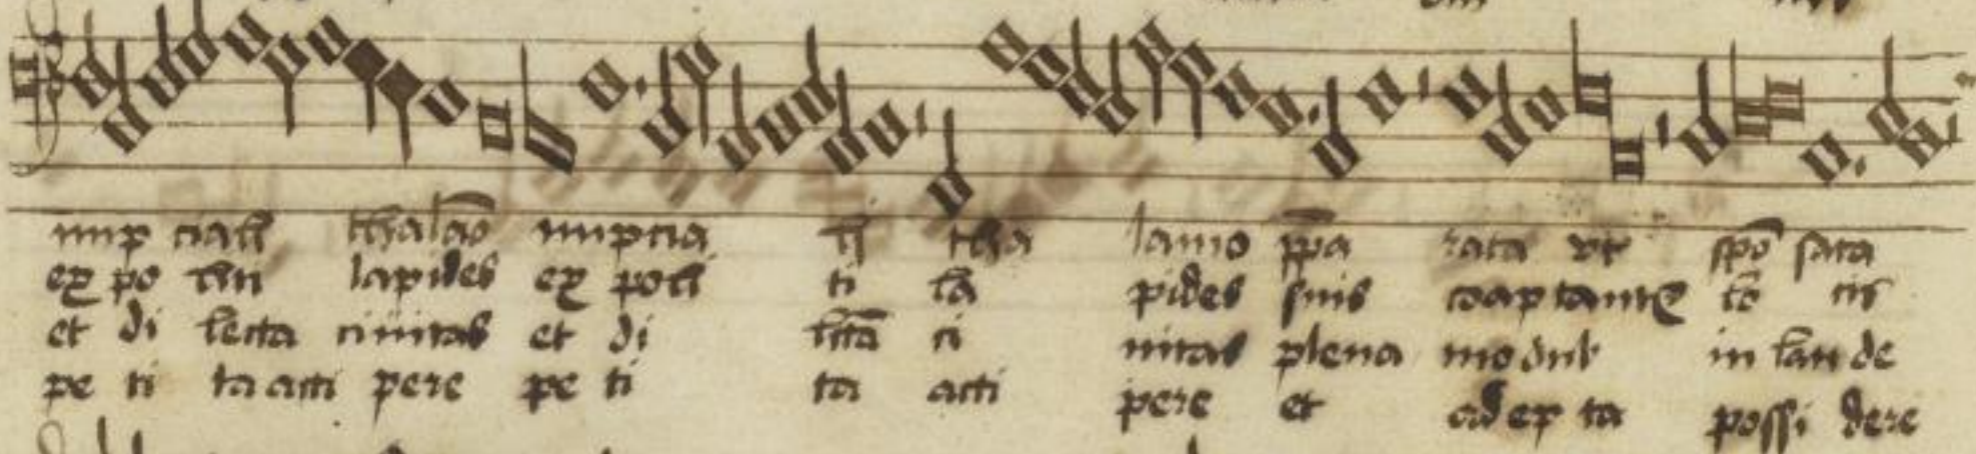 nup ciali thalāo nupcia li tha lamo p̄pa rata vt spō sata
ex po liti lapides ex poli ti la pides suis coaptantr̄ lo cis
et di lecta ciuitas et di lc̄ta ci uitas plena modul' in lau de
pe ti ta acci pere pe ti ta acci pere et adep ta possi dere